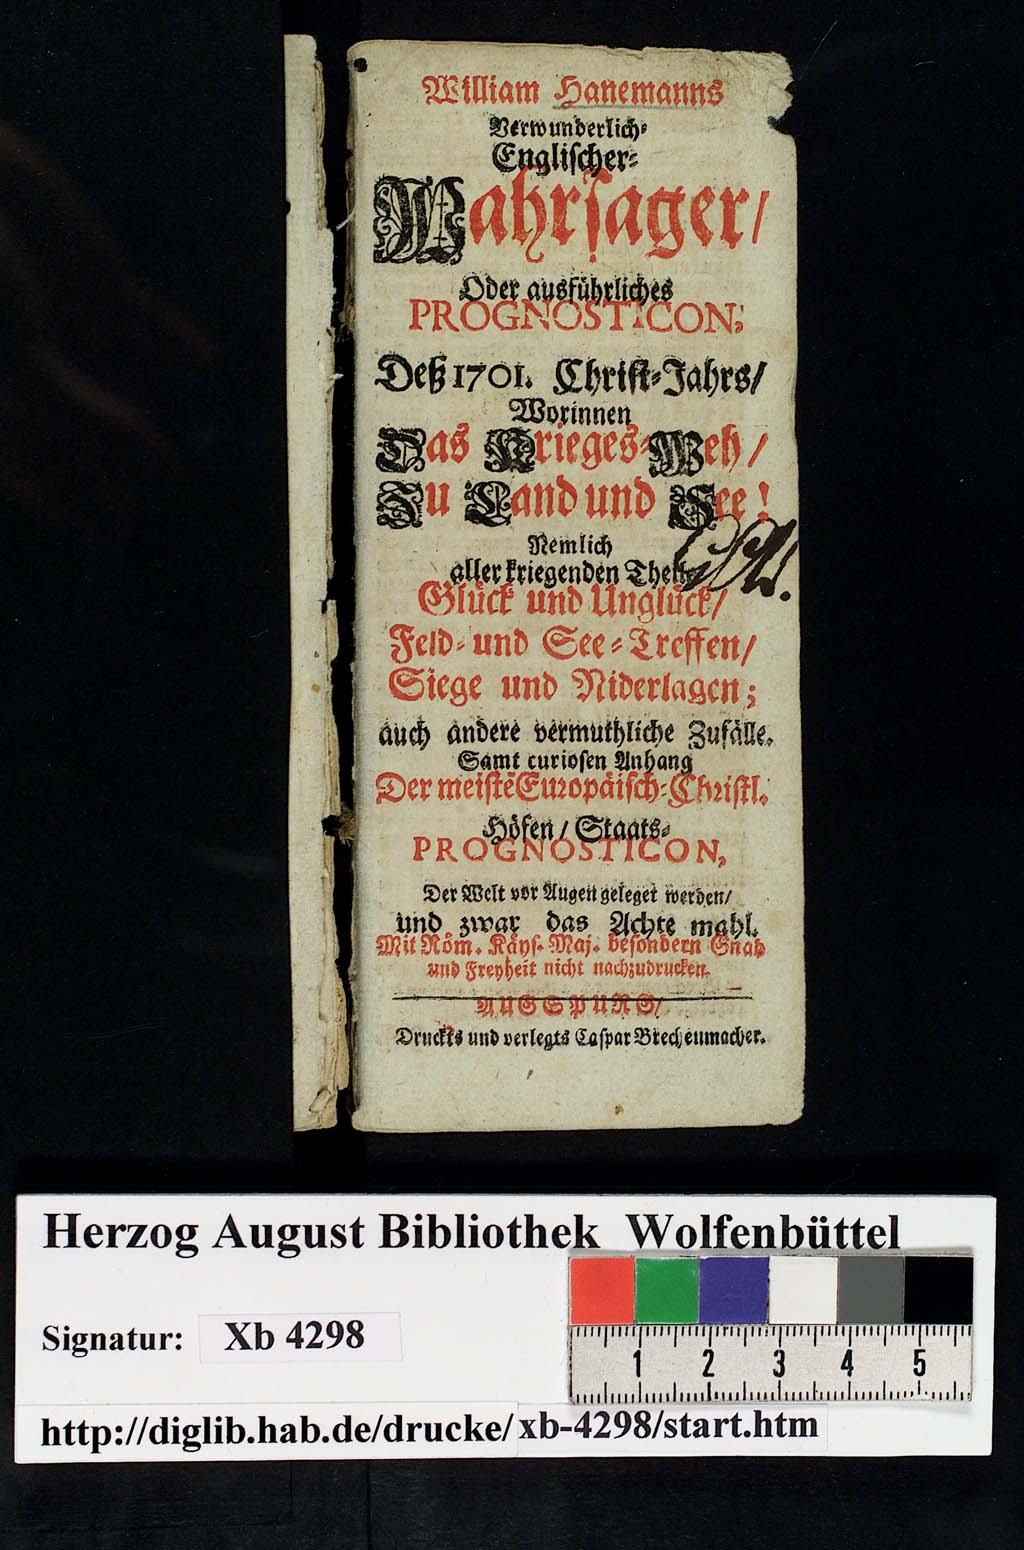 William Hanemanns
Verwunderlich-
Englischer-
Wahrsager/
Oder ausführliches
PROGNOSTICON;
Deß 1701. Christ-Jahrs/
Worinnen
Das Krieges-Weh/
Zu Land und See!
Nemlich
aller kriegenden Theile
Glück und Unglück/
Feld- und See-Treffen/
Siege und Niderlagen;
auch andere vermuthliche Zufälle.
Samt curiosen Anhang
Der meistē Europäisch-Christl.
Höfen/ Staats-
PROGNOSTICON,
Der Welt vor Augen geleget werden/
und zwar das Achte mahl.
Mit Röm. Käys. Maj. besondern Gnad
und Freyheit nicht nachzudrucken.
AUGSPURG/
Druckts und verlegts Caspar Brechenmacher.
Herzog August Bibliothek Wolfenbüttel
Signatur: Xb 4298
1 2 3 4 5
http://diglib.hab.de/drucke/xb-4298/start.htm